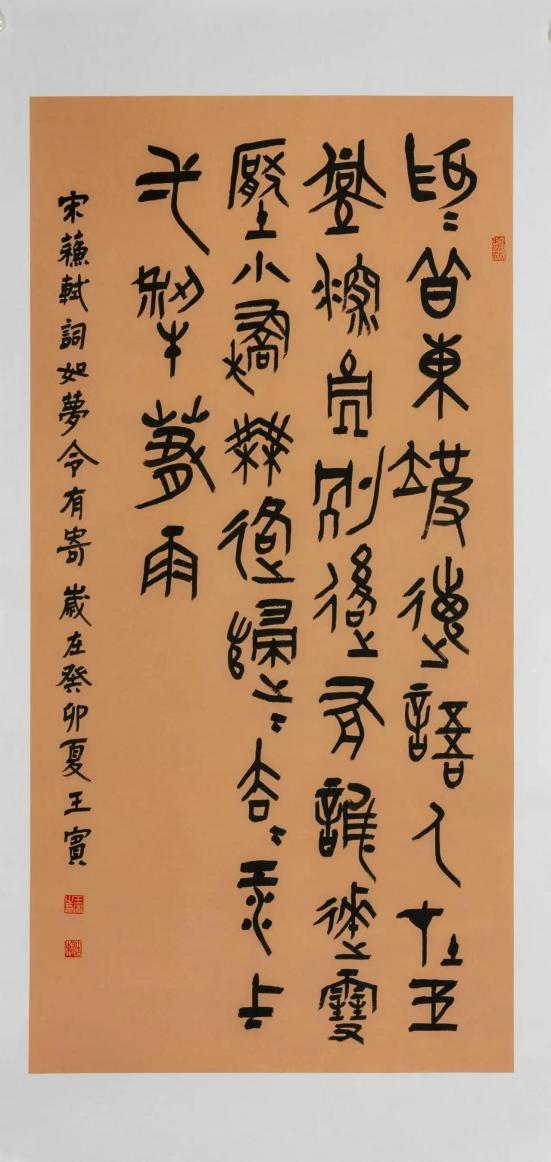 為向東坡傳語人在玉
堂深處別後有誰來雪
壓小橋無路歸=去=江上
弌犁春雨
宋蘓軾詞如夢令有寄 歲在癸卯夏王賓